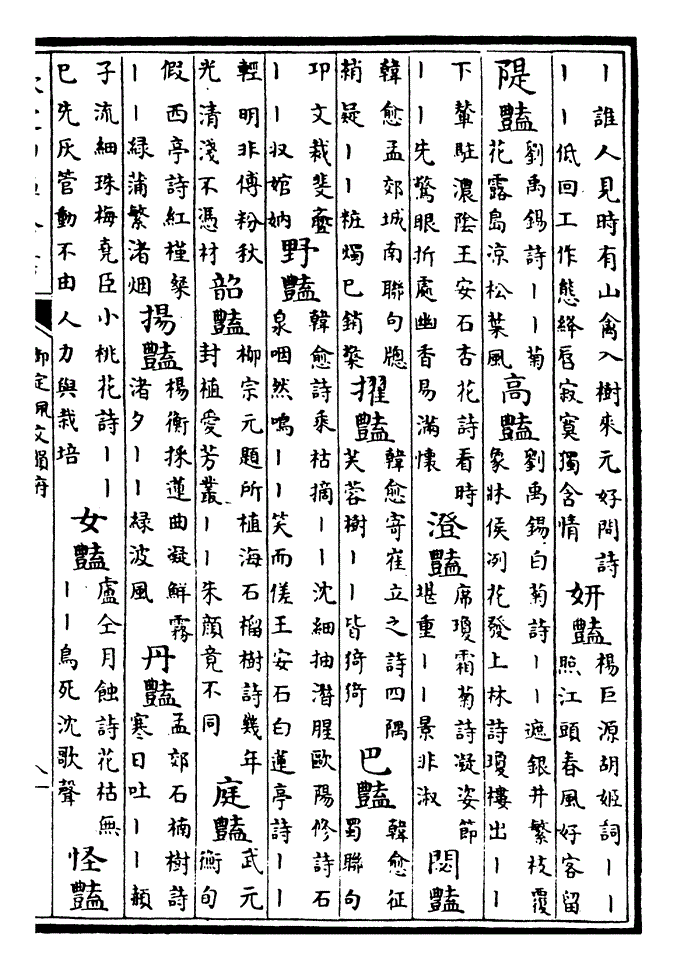 ｜誰人見時有山禽入樹來元好問詩
｜｜低回工作態絳唇寂寞獨含情
妍豔
楊巨源胡姬詞｜｜
照江頭春風好客留
隄豔
劉禹錫詩｜｜菊
花露島凉松葉風
高豔
劉禹錫白菊詩｜｜遮銀井繁枝覆
象牀侯冽花發上林詩瓊樓出｜｜
下輦駐濃陰王安石杏花詩看時
｜｜先驚眼折處幽香易滿懷
澄豔
席瓊霜菊詩凝姿節
堪重｜｜景非淑
閟豔
韓愈孟郊城南聯句牕
稍疑｜｜粧燭已銷檠
擢豔
韓愈寄崔立之詩四隅
芙蓉樹｜｜皆猗猗
巴豔
韓愈征
蜀聯句
卭文裁斐亹
｜｜收婠妠
野豔
韓愈詩乘枯摘｜｜沈細抽潛腥歐陽修詩石
泉咽然鳴｜｜笑而傞王安石白蓮亭詩｜｜
輕明非傅粉秋
光清淺不憑材
韶豔
柳宗元題所植海石榴樹詩幾年
封植愛芳叢｜｜朱顏竟不同
庭豔
武元
衡旬
假西亭詩紅槿粲
｜｜綠蒲繁渚烟
揚豔
楊衡採蓮曲凝鮮霧
渚夕｜｜綠波風
丹豔
孟郊石楠樹詩
寒日吐｜｜赬
子流細珠梅堯臣小桃花詩｜｜
已先灰管動不由人力與栽培
女豔
盧仝月蝕詩花枯無
｜｜鳥死沈歌聲
怪豔
御定佩文韻府